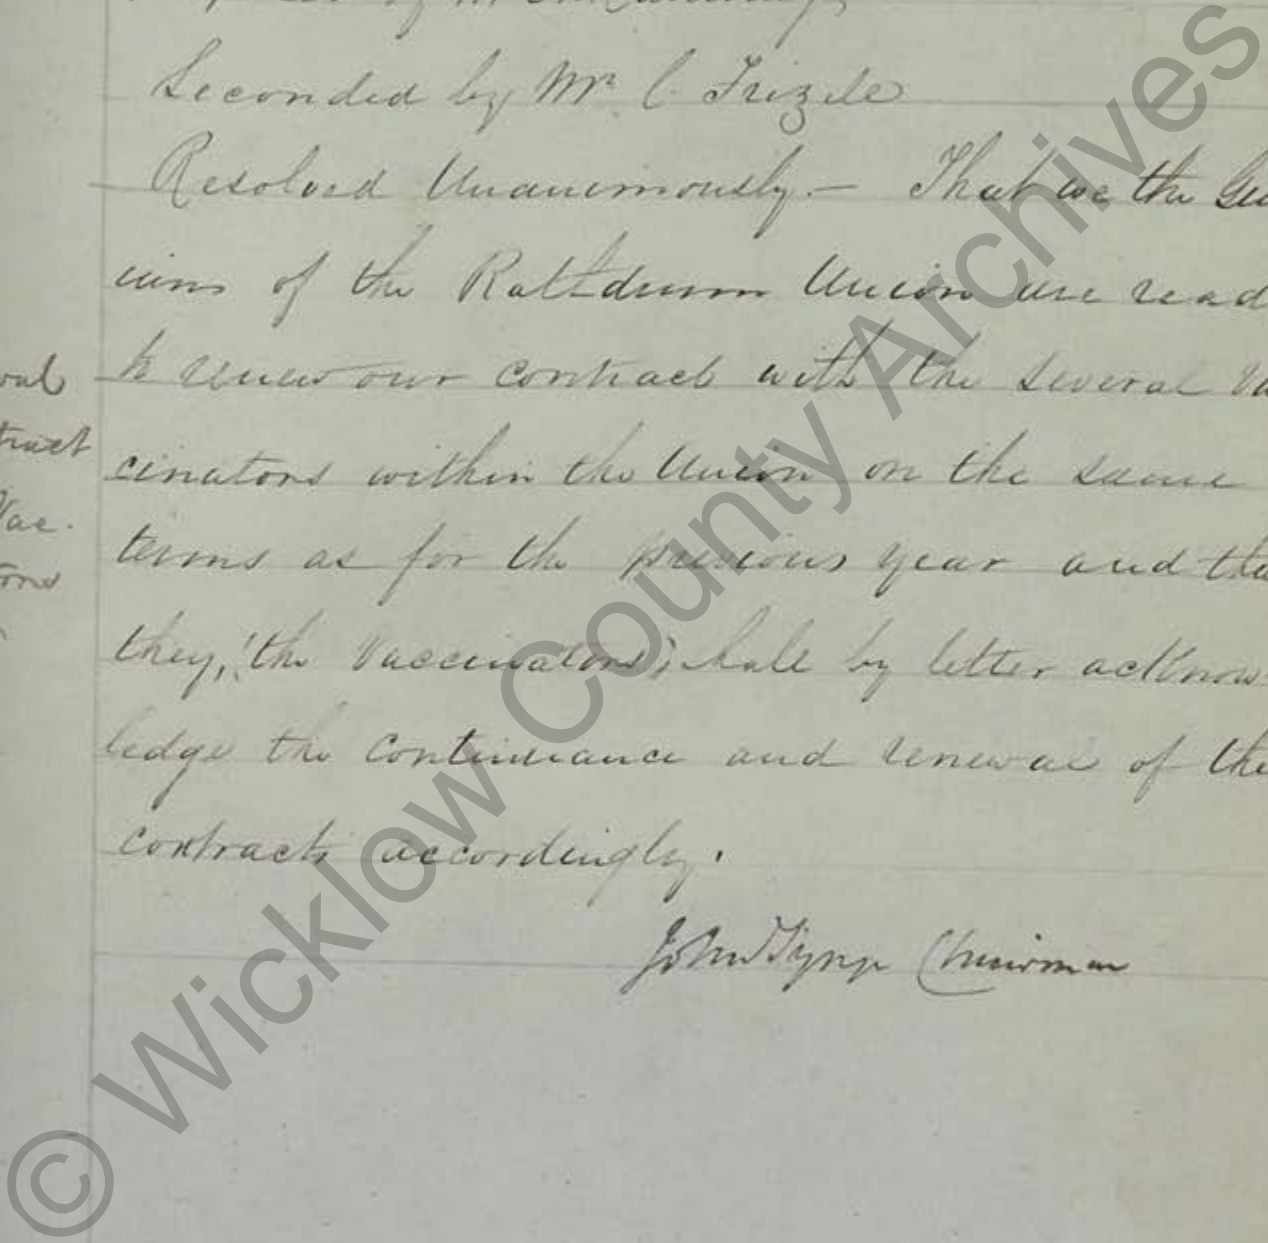 Seconded by Mr C. Frizele
Resolved Unanimously. — That we the Gu
ians of the Rathdrum Union are read
to renew our contract with the several Va
cinators within the Union on the same
terms as for the previous year and tha
they, (the Vaccinators) shall by letter acknow-
ledge the continuance and renewal of the
contracts accordingly.
John Tynge Chairman
wal
tract
Vac.
tors
© Wicklow County Archives